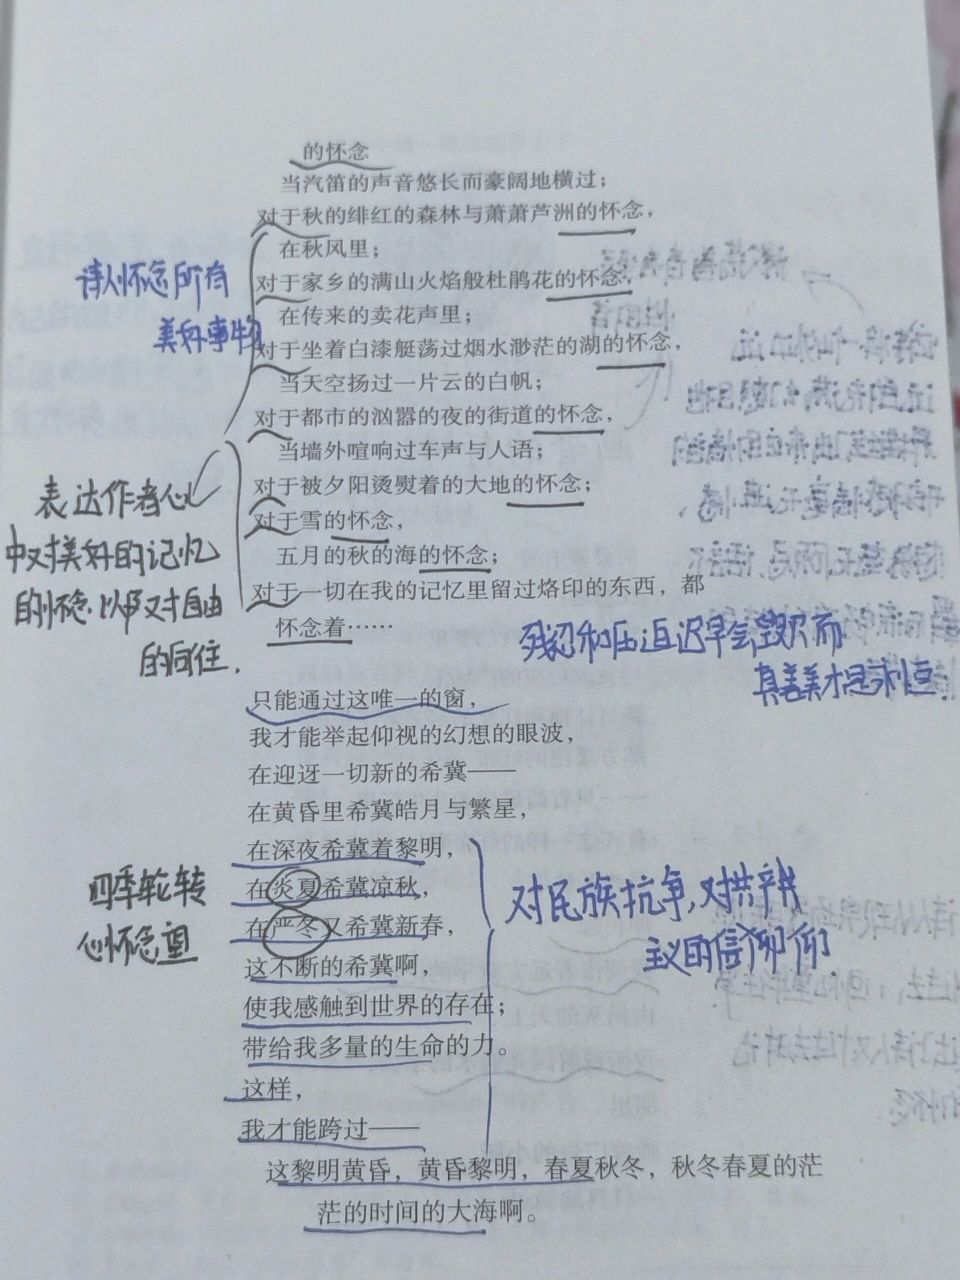 的怀念
当汽笛的声音悠长而豪阔地横过；
对于秋的绯红的森林与萧萧芦洲的怀念，
在秋风里；
对于家乡的满山火焰般杜鹃花的怀念，
在传来的卖花声里；
对于坐着白漆艇荡过烟水渺茫的湖的怀念，
当天空扬过一片云的白帆；
对于都市的汹嚣的夜的街道的怀念，
当墙外喧响过车声与人语；
对于被夕阳烫熨着的大地的怀念；
对于雪的怀念，
五月的秋的海的怀念；
对于一切在我的记忆里留过烙印的东西，都
怀念着……
诗人怀念所有
美好事物
表达作者心
中对美好的记忆
的怀念.以及对自由
的向往.
残忍和压迫迟早会毁灭而
真善美才是永恒.
只能通过这唯一的窗，
我才能举起仰视的幻想的眼波，
在迎迓一切新的希冀——
在黄昏里希冀皓月与繁星，
在深夜希冀着黎明，
在炎夏希冀凉秋，
在严冬又希冀新春，
这不断的希冀啊，
使我感触到世界的存在；
带给我多量的生命的力。
这样，
我才能跨过——
这黎明黄昏，黄昏黎明，春夏秋冬，秋冬春夏的茫
茫的时间的大海啊。
四季轮转
心怀念重
对民族抗争，对共产
主义的信仰